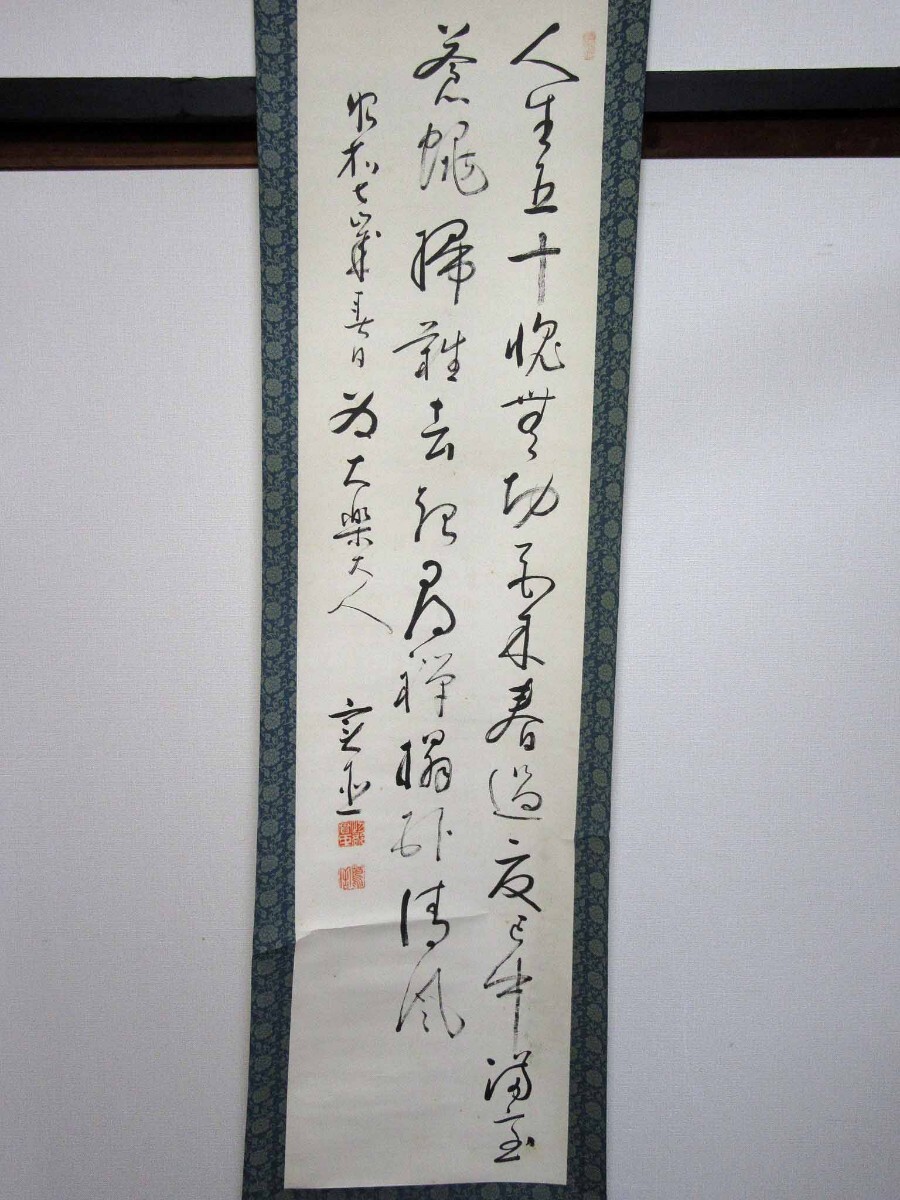 人生五十愧無功花木春過夏已中満室
蒼蠅掃難去起尋禅榻臥清風
昭和七歳春日為大楽大人